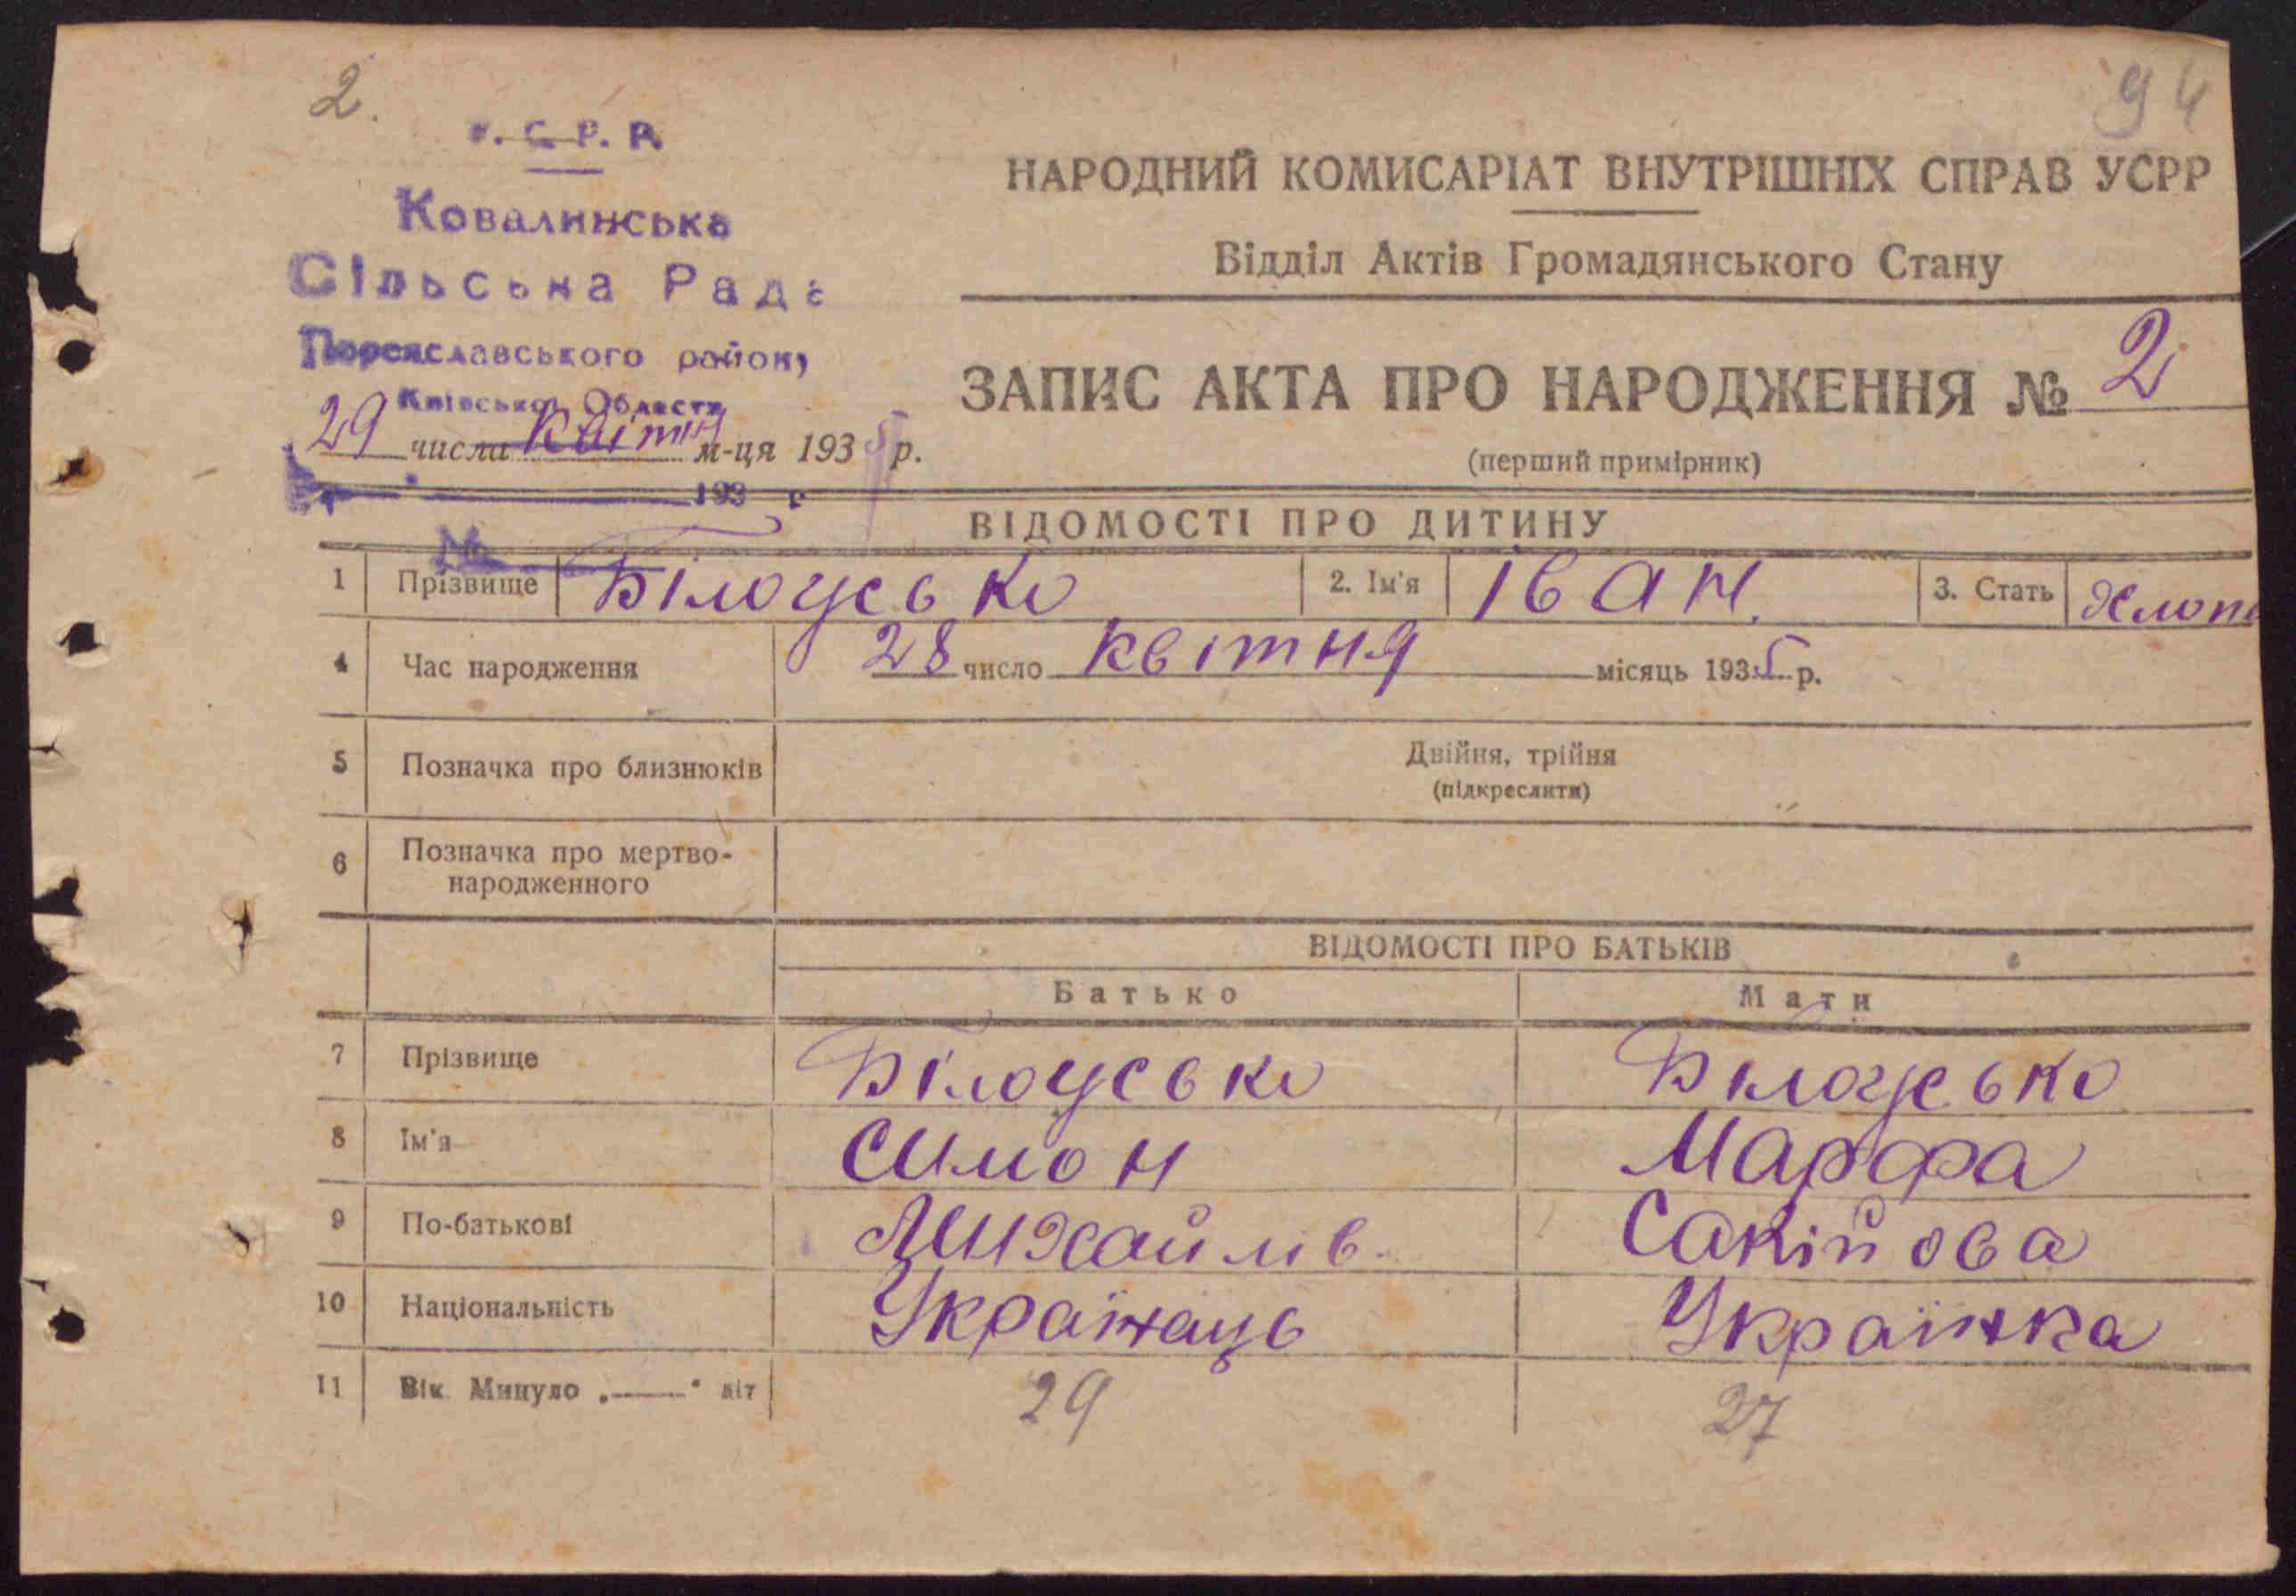 2.
94
У. С. Р. Р.
Ковалинська
Сільська Рада
Переяславського району
Київської Области
29 числа квітня м-ця 1935 р.
193 р
№
НАРОДНИЙ КОМИСАРІАТ ВНУТРІШНІХ СПРАВ УСРР
Відділ Актів Громадянського Стану
ЗАПИС АКТА ПРО НАРОДЖЕННЯ № 2
(перший примірник)
ВІДОМОСТІ ПРО ДИТИНУ
1 Прізвище Білоусько 2. Ім'я Іван. 3. Стать Хлопе
4 Час народження 28 число квітня місяць 1935 р.
5 Позначка про близнюків Двійня, трійня
(підкреслити)
6 Позначка про мертво-
народженного
ВІДОМОСТІ ПРО БАТЬКІВ
Батько Мати
7 Прізвище Білоусько Білоусько
8 Ім'я Симон Марфа
9 По-батькові Михайлів. Сакійова
10 Національність Українаць Українка
11 Вік Минуло „——" літ 29 27